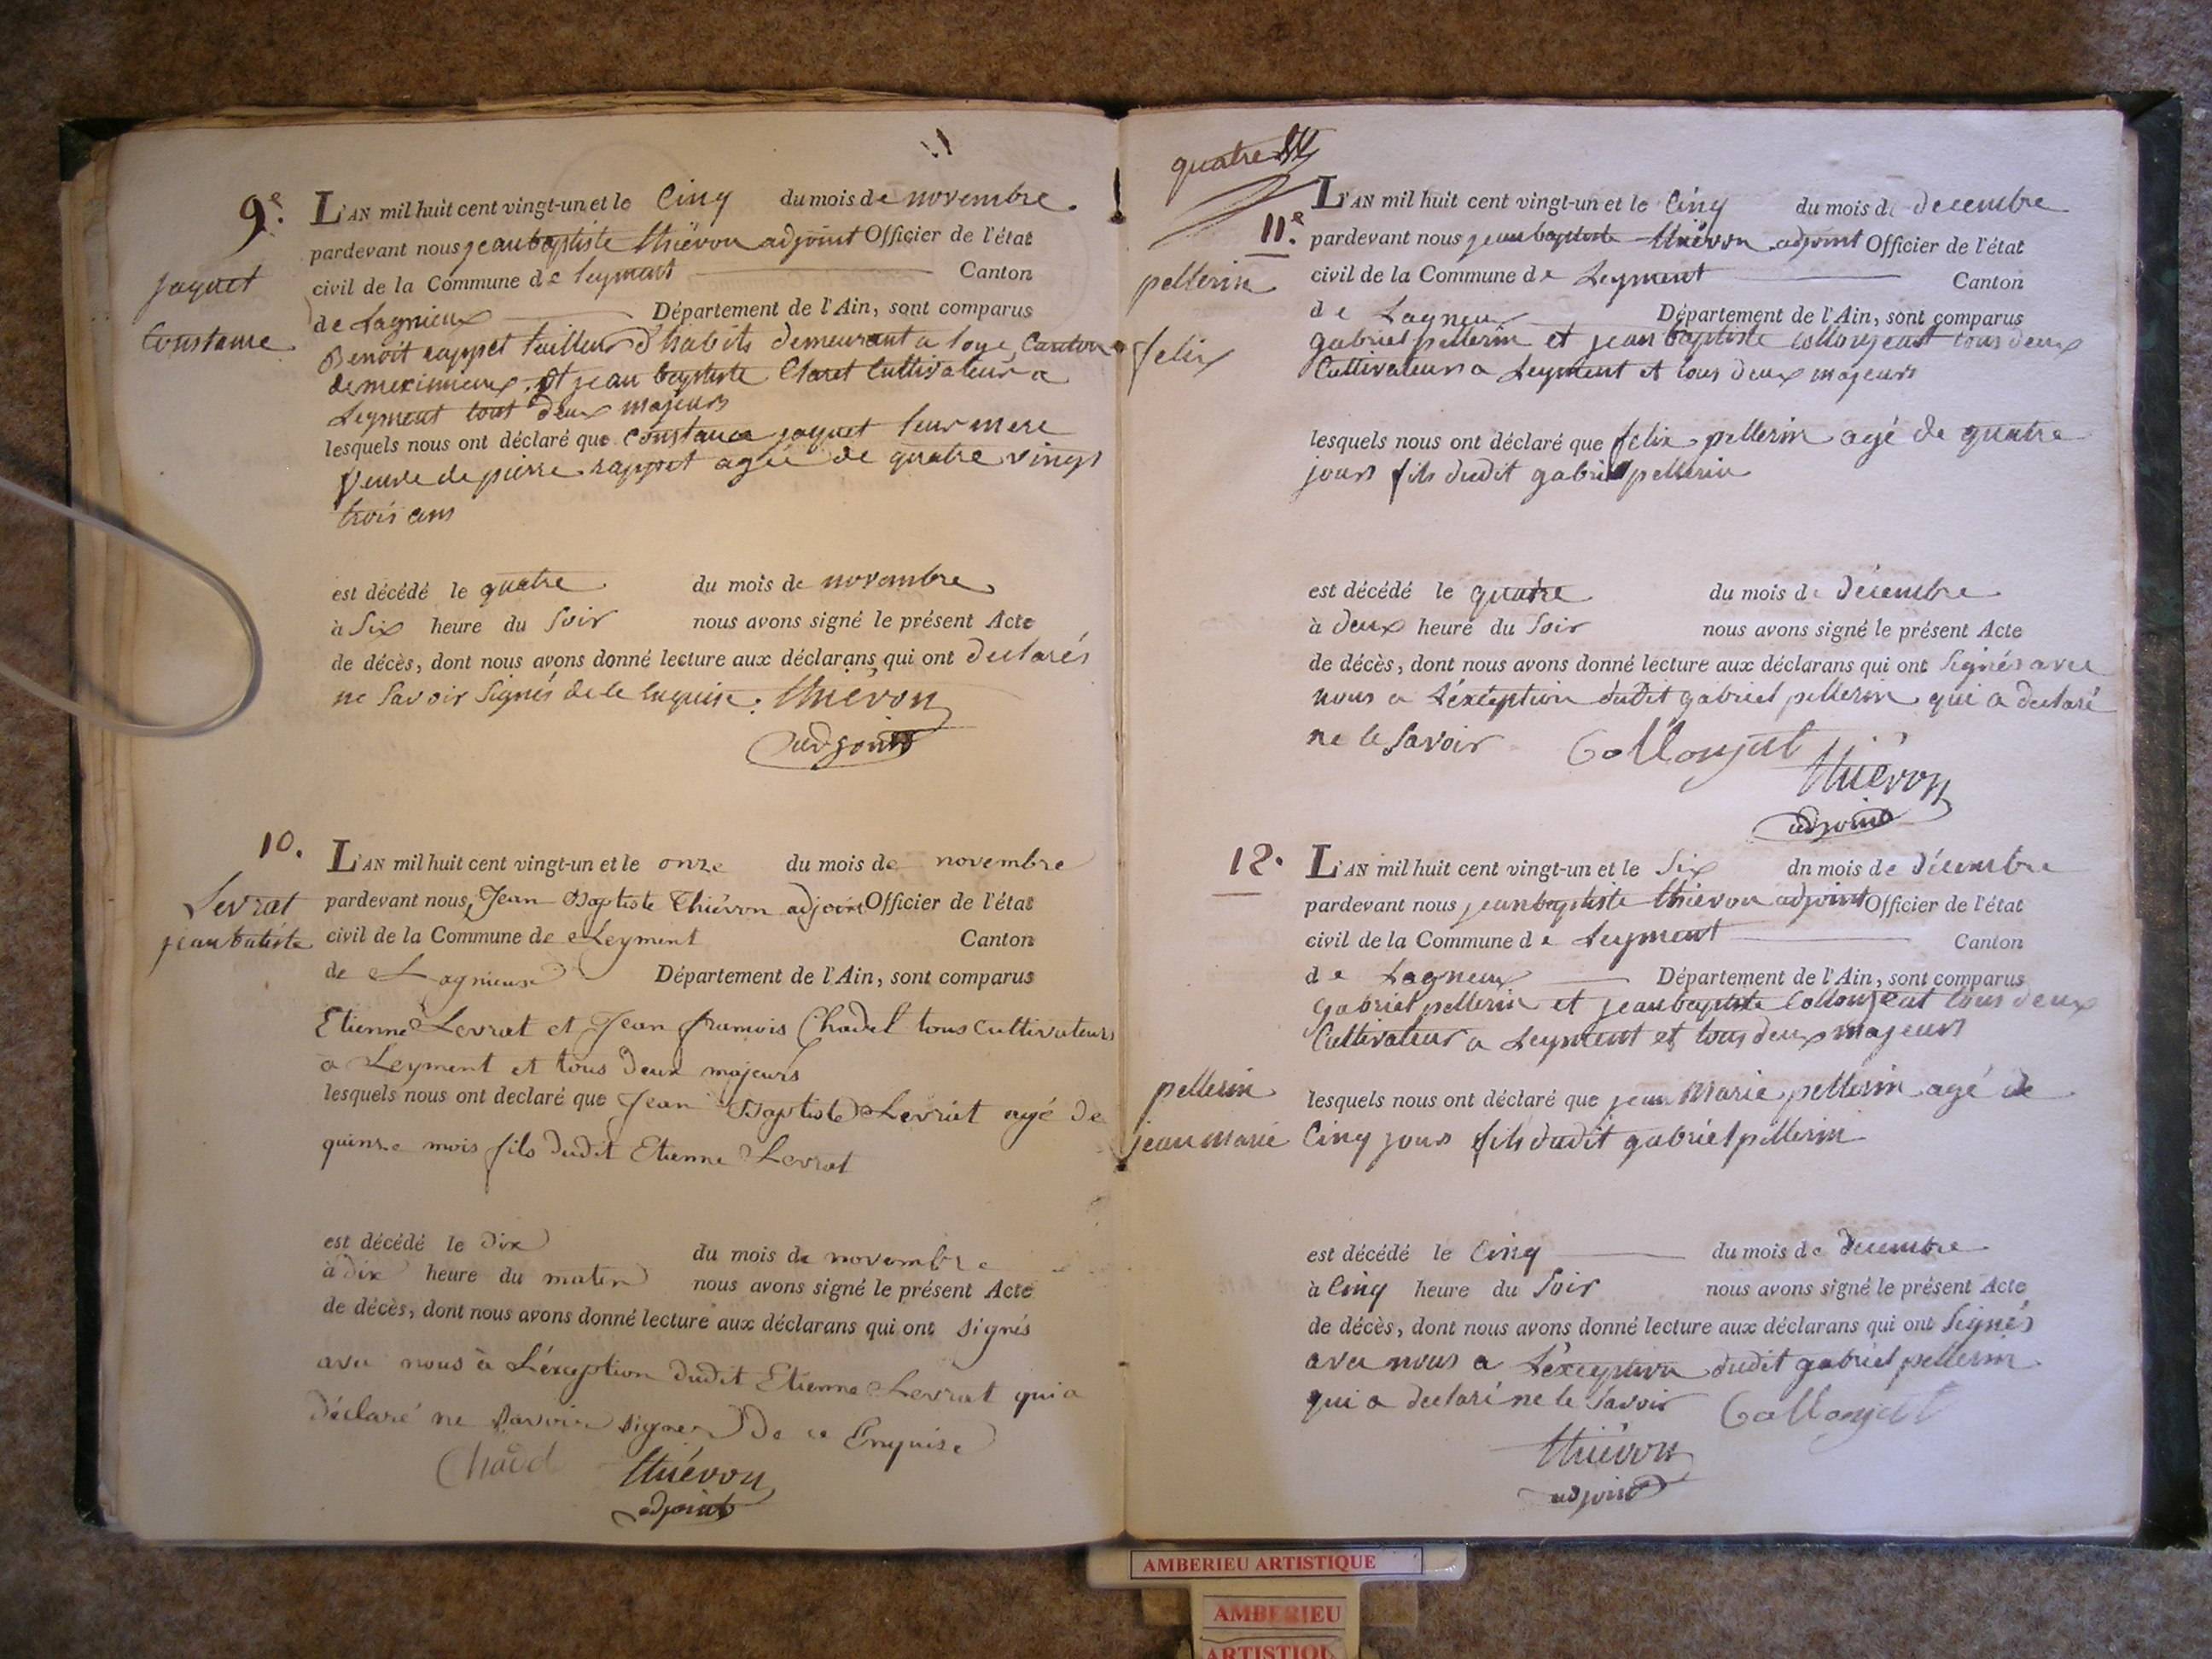 9e.
jaquet
Constance
L'AN mil huit cent vingt-un et le Cinq du mois de novembre
pardevant nous jean baptiste thiévon adjoint Officier de l'état
civil de la Commune de leyment Canton
de Lagnieux Département de l'Ain, sont comparus
Benoit rappet tailleur d'habits demeurant a loye, Canton
de meximieux, et jean baptiste Claret Cultivateur a
Leyment tout deux majeurs
lesquels nous ont déclaré que Constance jaquet leur mere
veuve de pierre rappet agée de quatre vingt
trois ans
est décédé le quatre du mois de novembre
à Six heure du Soir nous avons signé le présent Acte
de décès, dont nous avons donné lecture aux déclarans qui ont declarés
ne Savoir Signés de ce enquise. thiévon
adjoint
10.
Levrat
jean batiste
L'AN mil huit cent vingt-un et le onze du mois de novembre
pardevant nous, Jean Baptiste Thiévon adjoint Officier de l'état
civil de la Commune de Leyment Canton
de Lagnieux Département de l'Ain, sont comparus
Etienne Levrat et Jean francois Chadel tous cultivateurs
a Leyment et tous deux majeurs
lesquels nous ont declaré que Jean Baptiste Levrat agé de
quinze mois fils dudit Etienne Levrat
est décédé le dix du mois de novembre
à dix heure du matin nous avons signé le présent Acte
de décès, dont nous avons donné lecture aux déclarans qui ont signés
avec nous à L'éxception dudit Etienne Levrat qui a
déclaré ne Savoir signer De ce Enquise
thiévon
adjoint
quatre
11e.
pellerin
felix
L'AN mil huit cent vingt-un et le Cinq du mois de decembre
pardevant nous jean baptiste thiévon adjoint Officier de l'état
civil de la Commune de Leyment Canton
de Lagneux Département de l'Ain, sont comparus
gabriel pellerin et jean baptiste Collonjeat tous deux
Cultivateurs a Leyment et tous deux majeurs
lesquels nous ont déclaré que felix pellerin agé de quatre
jours fils dudit gabriel pellerin
est décédé le quatre du mois de décembre
à deux heure du Soir nous avons signé le présent Acte
de décès, dont nous avons donné lecture aux déclarans qui ont Signés avec
nous a L'éxception dudit gabriel pellerin qui a declaré
ne le Savoir Collonjat
thiévon
adjoint
12.
pellerin
jean marie
L'AN mil huit cent vingt-un et le Six dn mois de décembre
pardevant nous jean baptiste thiévon adjoint Officier de l'état
civil de la Commune de Leyment Canton
de Lagneux Département de l'Ain, sont comparus
gabriel pellerin et jean baptiste Collonjeat tous deux
Cultivateur a Leyment et tous deux majeurs
lesquels nous ont déclaré que jean Marie pellerin agé de
Cinq jours fils dudit gabriel pellerin
est décédé le Cinq du mois de decembre
à Cinq heure du Soir nous avons signé le présent Acte
de décès, dont nous avons donné lecture aux déclarans qui ont Signés
avec nous a L'éxception dudit gabriel pellerin
qui a declaré ne le Savoir Collonjat
thiévon
adjoint
AMBERIEU ARTISTIQUE
AMBERIEU
ARTISTIQU